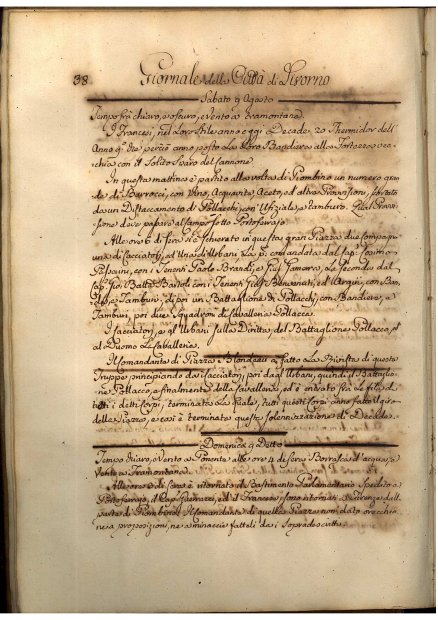 38.
Giornale della Città di Livorno
Sabato 9 Agosto
Tempo frà chiaro, e oscuro, e vento a tramontana.
I Francesi, nel Loro stile anno oggi Decade, 20 Thermidor dell'
Anno 9º. e perciò anno posto La Loro Bandiera alla Fortezza vec-
chia con il Solito Sparo del Cannone.
In questa mattina è partito alla volta di Piombino un numero gran-
de di Barrocci, con Vino, Acquavite, Aceto, ed altre Provvisioni, scortato
da un Distaccamento di Pollacchi, con Ufiziale e Tamburo. Qual Provvi-
sione deve passare al Campo sotto Portoferrajo.
Alle ore 6 di sera si è schierato in questa gran Piazza due compagnie
una di Cacciatori, ed Una di Urbani. La p. comandata dal Cap.
con i Tenenti Paolo Brandi, e La seconda dal
Cap. Batta Bastoli con i Tenenti Benvenuti, ed con Ban-
de, e Tamburi, di poi un Battaglione di Pollacchi, con Bandiere, e
Tamburi, poi due Squadroni di Cavalleria Pollacca.
I Cacciatori, e gl'Urbani sulla Diritta, del Battaglione Pollacco, e
al Duomo La Cavalleria.
Il Comandante di Piazza à fatto La Rivista di questa
Truppa principiando da i Cacciatori, poi dagl'Urbani, quindi il Battaglio-
ne Pollacco, e finalmente della Cavalleria, ed è entrato frà Le file di
tutti i detti Corpi, terminata La quale, tutti questi Corpi anno fatto il giro
della Piazza, e così è terminata questa Solennizzazione di Decade.
Domenica 9 Detto
Tempo chiaro, e Vento a Ponente alle ore 4 di sera Borrasca d'acqua, e
Voltò a Tramontana.
Alle ore 6 di sera è ritornato il Bastimento Parlamentario Spedito a
Portoferrajo, il Capo ed il Francese sono ritornati a Livorno dalla
parte di Piombino. Il Comandante di quella Piazza non à dato orecchio
ne a proposizioni, ne a minaccie fatteli da i Sopradescritti.